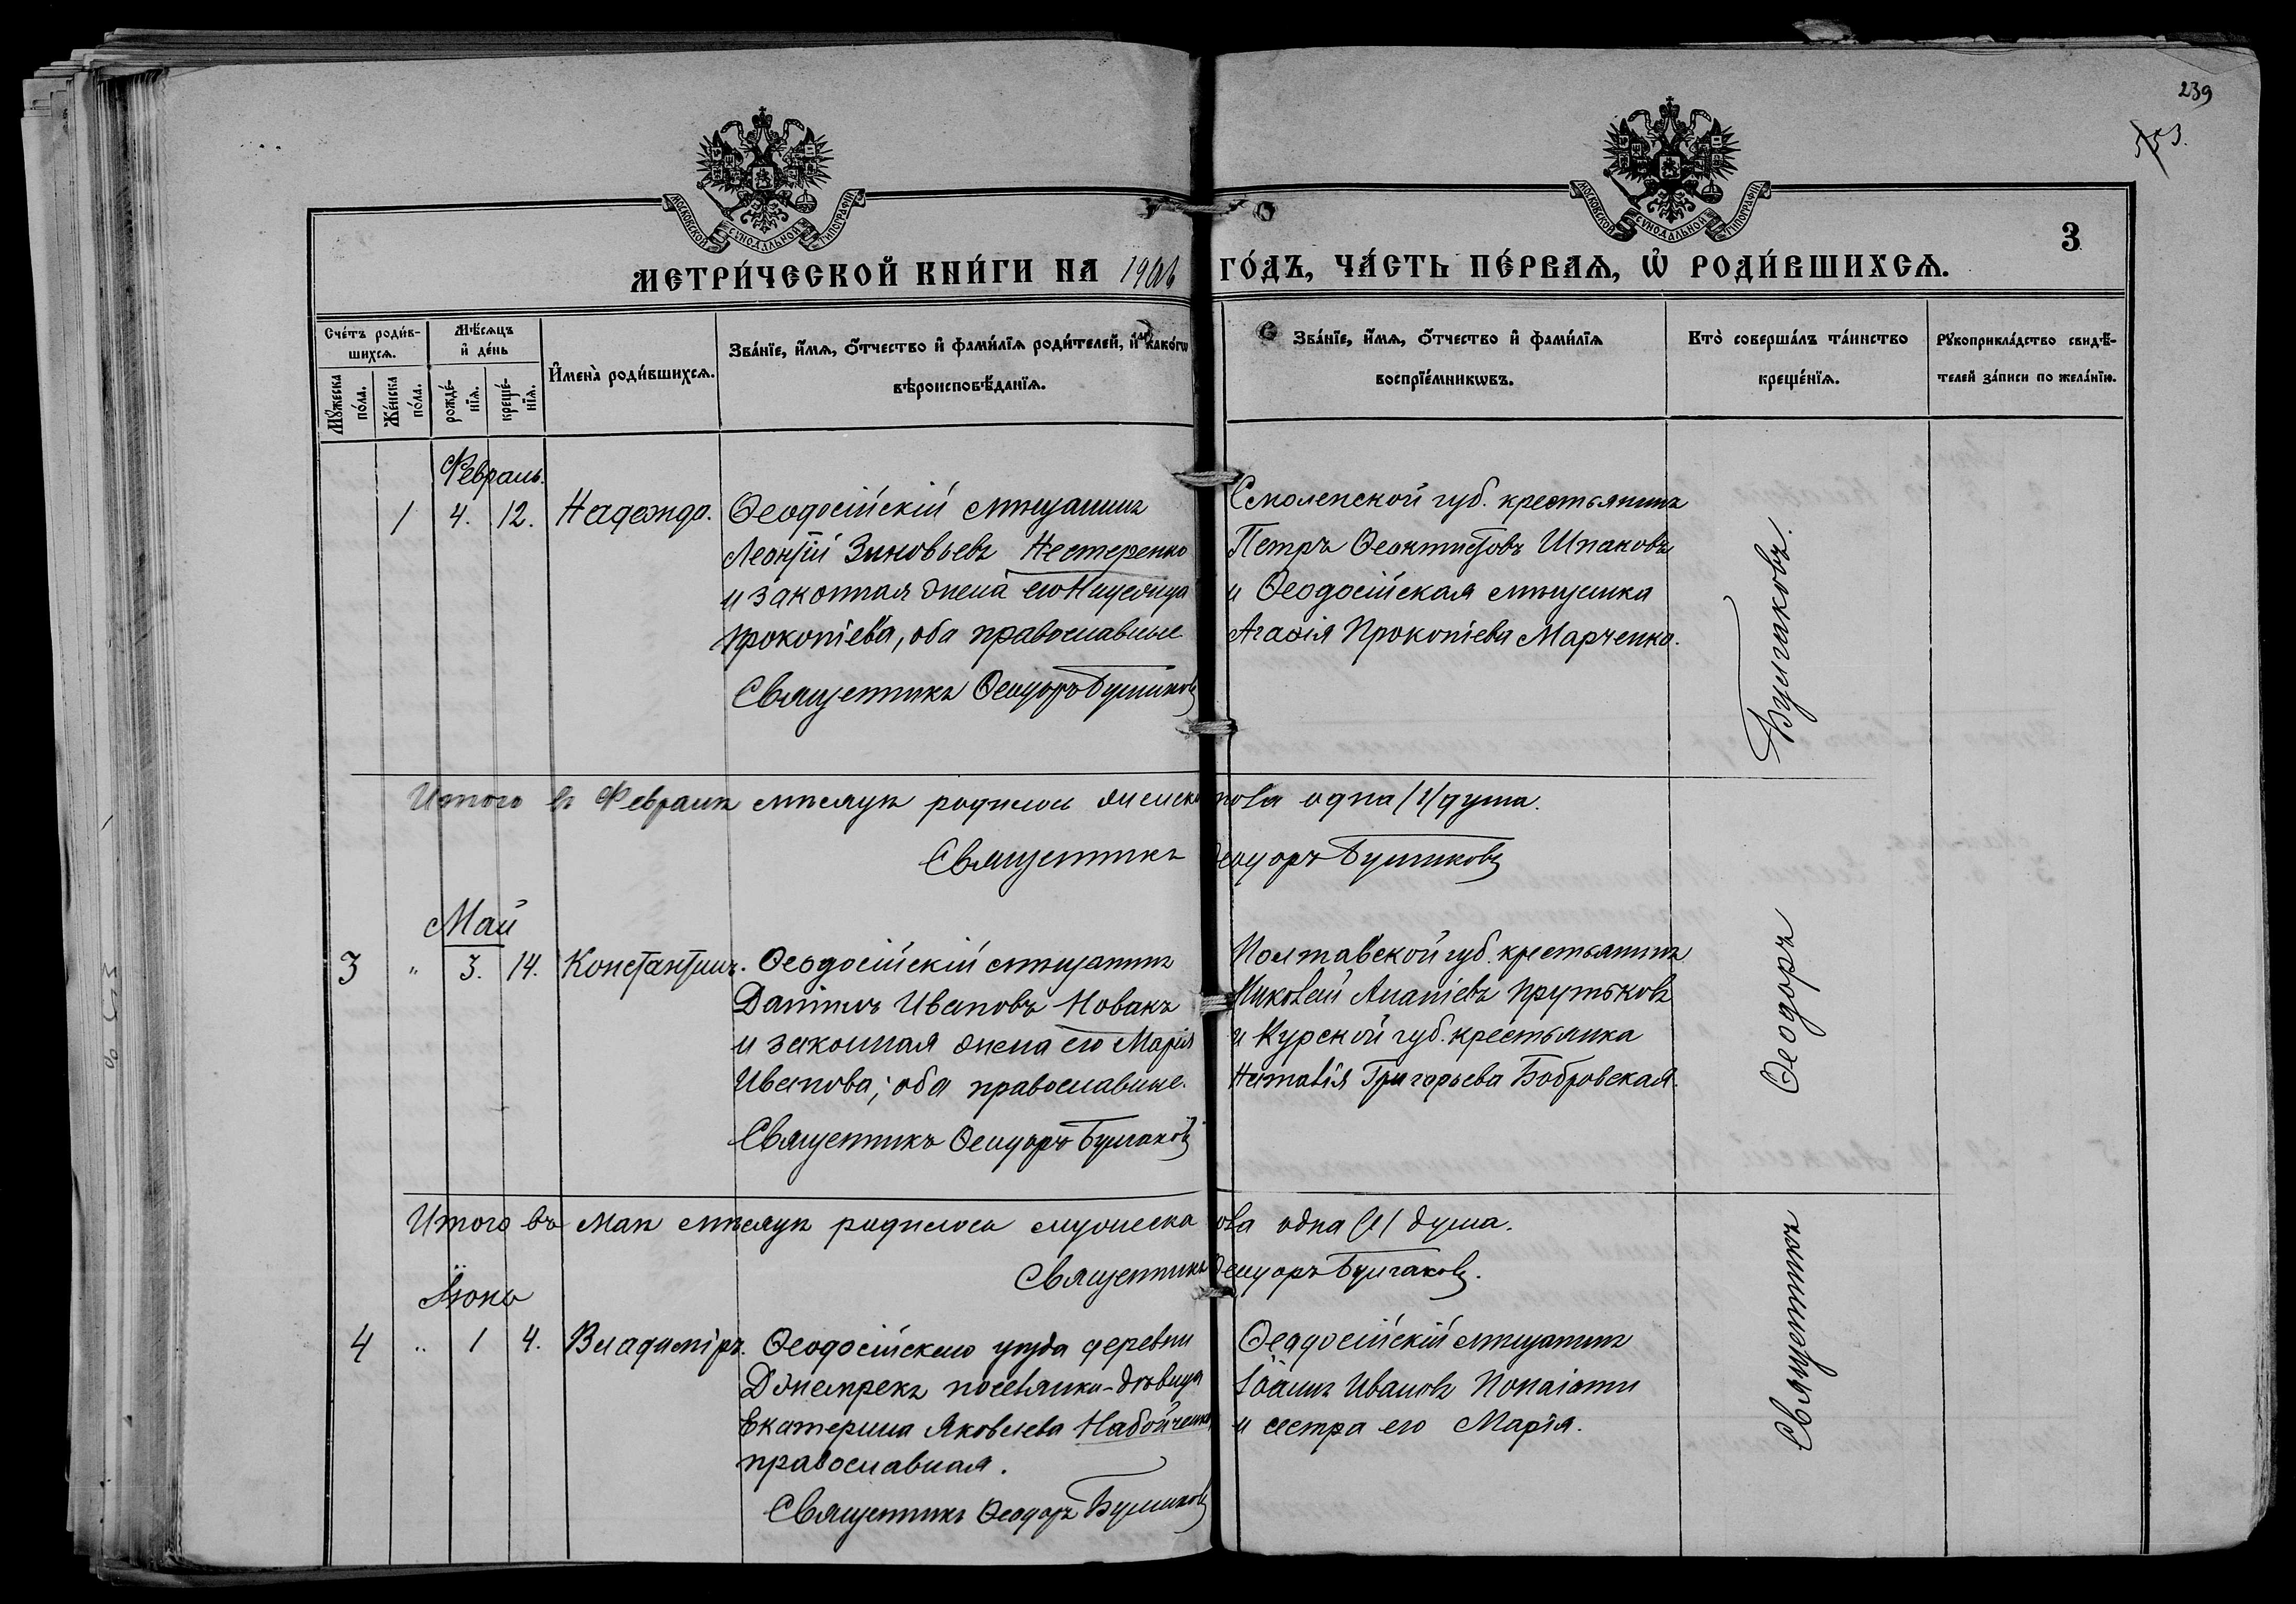 239
553.
МОСКОВСКОЙ СѴНОДАЛЬНОЙ ТИПОГРАФІИ
МОСКОВСКОЙ СѴНОДАЛЬНОЙ ТИПОГРАФІИ
3
МЕТРИ́ЧЕСКОЙ КНИ́ГИ НА 1906 ГО́ДЪ, ЧА́СТЬ ПЕ́РВАЯ, Ѡ҆ РОДИ́ВШИХСѦ.
Сче́тъ роди́в-
шихсѧ.
Мꙋ́жеска
по́ла.
Же́нска
по́ла.
Мѣ́сѧцъ
и҆ де́нь
рожде́-
нїѧ.
креще́-
нїѧ.
И҆мена̀ роди́вшихсѧ.
Зва́нїе, и҆́мѧ, ѻ҆́тчество и҆ фами́лїѧ роди́телей, и҆ како́гѡ
вѣроисповѣ́данїѧ.
Зва́нїе, и҆́мѧ, ѻ҆́тчество и҆ фами́лїѧ
воспрїе́мникѡвъ.
Кто̀ соверша́лъ та́инство
креще́нїѧ.
Рꙋкоприкла́дство свидѣ́-
телей за́писи по жела́нїю.
Февраль.
1 4. 12. Надежда. Ѳеодосійскій мѣщанинъ
Леонтій Зиновьевъ Нестеренко
и законная жена его
Прокопіева, оба православные
Священникъ Ѳеодоръ Булгаковъ
Смоленской губ. крестьянинъ
Петръ Ѳеоктистовъ Шпаковъ
и Ѳеодосійская мѣщанка
Агаѳія Прокопіева Марченко.
Итого въ Февралѣ мѣсяцѣ родилось женска пола одна /1/ душа.
Священникъ Ѳеодоръ Булгаковъ
Май
3 " 3. 14. Константинъ. Ѳеодосійскій мѣщанинъ
Даніилъ Ивановъ Новакъ
и законная жена его Марія
Иванова; оба православные.
Священникъ Ѳеодоръ Булгаковъ
Полтавской губ. крестьянинъ
Николай Ананіевъ Прутьковъ
и Курской губ. крестьянка
Наталія Григорьева Бобровская.
Итого въ Маѣ мѣсяцѣ родилось мужеска пола одна /1/ душа.
Священникъ Ѳеодоръ Булгаковъ.
Іюнь
4 " 1 4. Владиміръ. Ѳеодосійскаго уѣзда деревни
поселянка-дѣвица
Екатерина Яковлева Набойченко
православная.
Священникъ Ѳеодоръ Булгаковъ
Ѳеодосійскій мѣщанинъ
Іоаннъ Ивановъ
и сестра его Марія.
Священникъ Ѳеодоръ Булгаковъ.